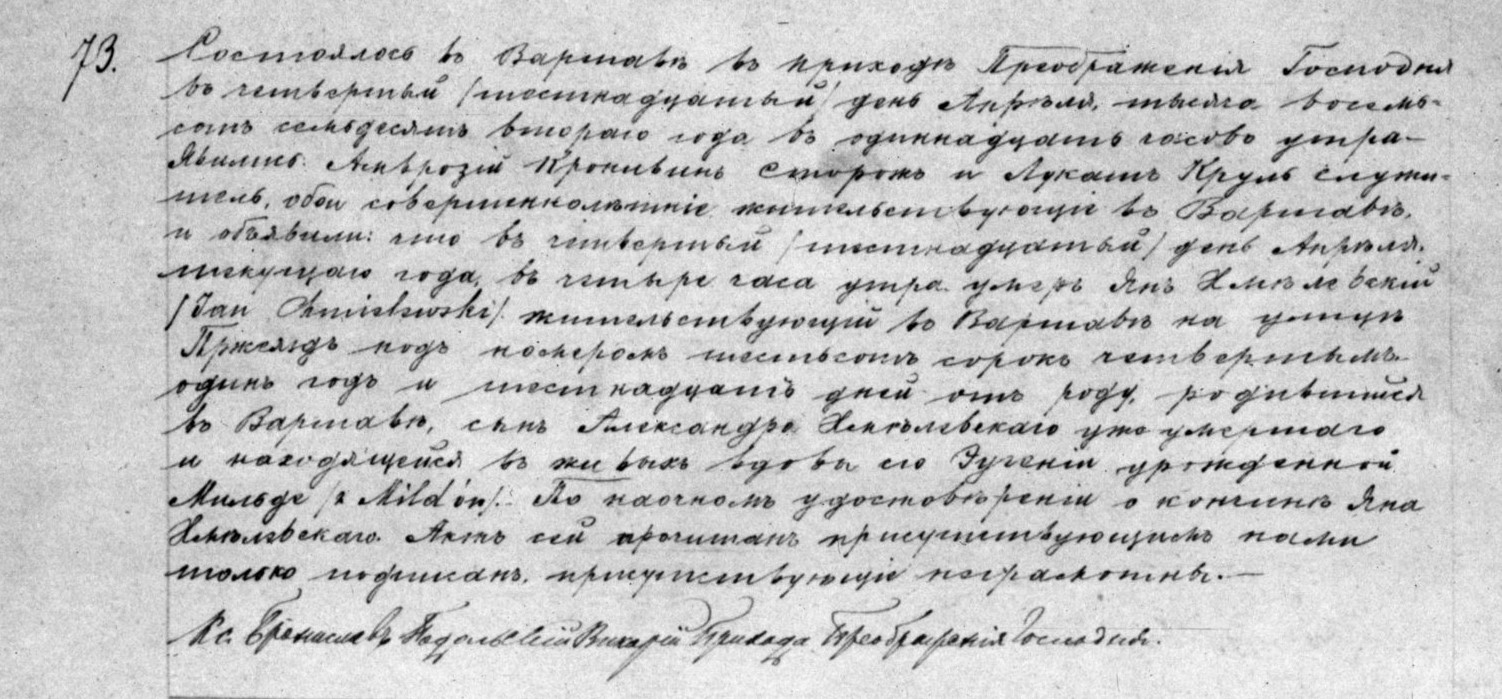 73. Состоялось въ Варшавѣ въ приходѣ Преображенія Господня
въ четвертый /шестнадцатый/ день Апрѣля, тысяча восемь-
сотъ семьдесятъ втораго года въ одиннадцать часовъ утра-
Явились: Амврозій Кропивинъ Сторожъ и Лукашъ Круль служи-
тель, обои совершеннолѣтніе жительствующіе въ Варшавѣ,
и объявили: что въ четвертый /шестнадцатый/ день Апрѣля,
текущаго года, въ четыре часа утра умеръ Янъ Хмѣлевскій
/Jan Chmielewski/ жительствующій въ Варшавѣ на улицѣ
подъ номеромъ шестьсотъ сорокъ четвертымъ
одинъ годъ и шестнадцать дней отъ роду, родившійся
въ Варшавѣ, сынъ Александра Хмѣлевскаго уже умершаго
и находящейся въ живыхъ вдовы его Эугеніи урожденной
Мильде /z Mildów/. По наочномъ удостовѣреніи о кончинѣ Яна
Хмѣлевскаго Актъ сей прочитанъ присутствующимъ нами
только подписанъ, присутствующіе неграмотны.—
Кс. Брониславъ Викарій Прихода Преображенія Господня.